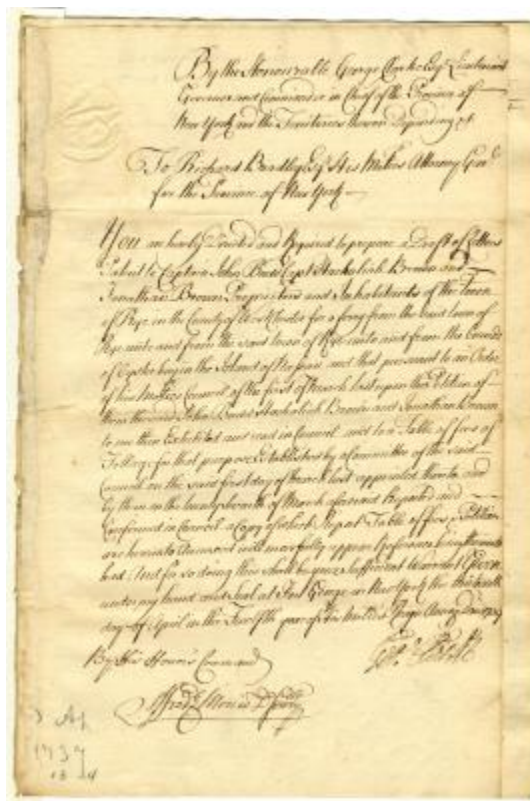 By the Honourable George Clarke Esqr. Lieutenant
Governor and Commander in Chief of the Province of
New York and the Territories thereon Depending &c
To Richard Bradley Esqr. His Majties Attorney Genl
for the Province of New York
You are hereby Directed and Required to prepare a Draft of Letters
Patent to Captain John Budd Capt Hachaliah Brown and
Jonathan Brown Proprietors and Inhabitants of the Town
of Rye in the County of West Chester for a ferry from the said Town of
Rye unto and from the said town of Rye unto and from the
of Oyster bay in the Island of Nassau and that pursuant to an Order
of his Majties Council of the first of March last upon the Petition of
them the said John Budd Hachaliah Brown and Jonathan Brown
to me then Exhibited and read in Council and to a Table of fees of
for that purpose Established by a Committee of the said
Council on the said first day of March last appended thereto and
by them on the of March afterward Reported and
Confirmed in Council a Copy of which Report Table of fees & Petition
are hereunto Annexed will more fully appear reference being thereunto
had And for so doing this shall be your Sufficient Warrant Given
under my hand and Seal at Fort George in New York the
day of April in the Twelfth year of his Majties Reign Annoq Dni 1739
Geo: Clarke
By His Honours Command
Fredk Morris D Secry
Ap